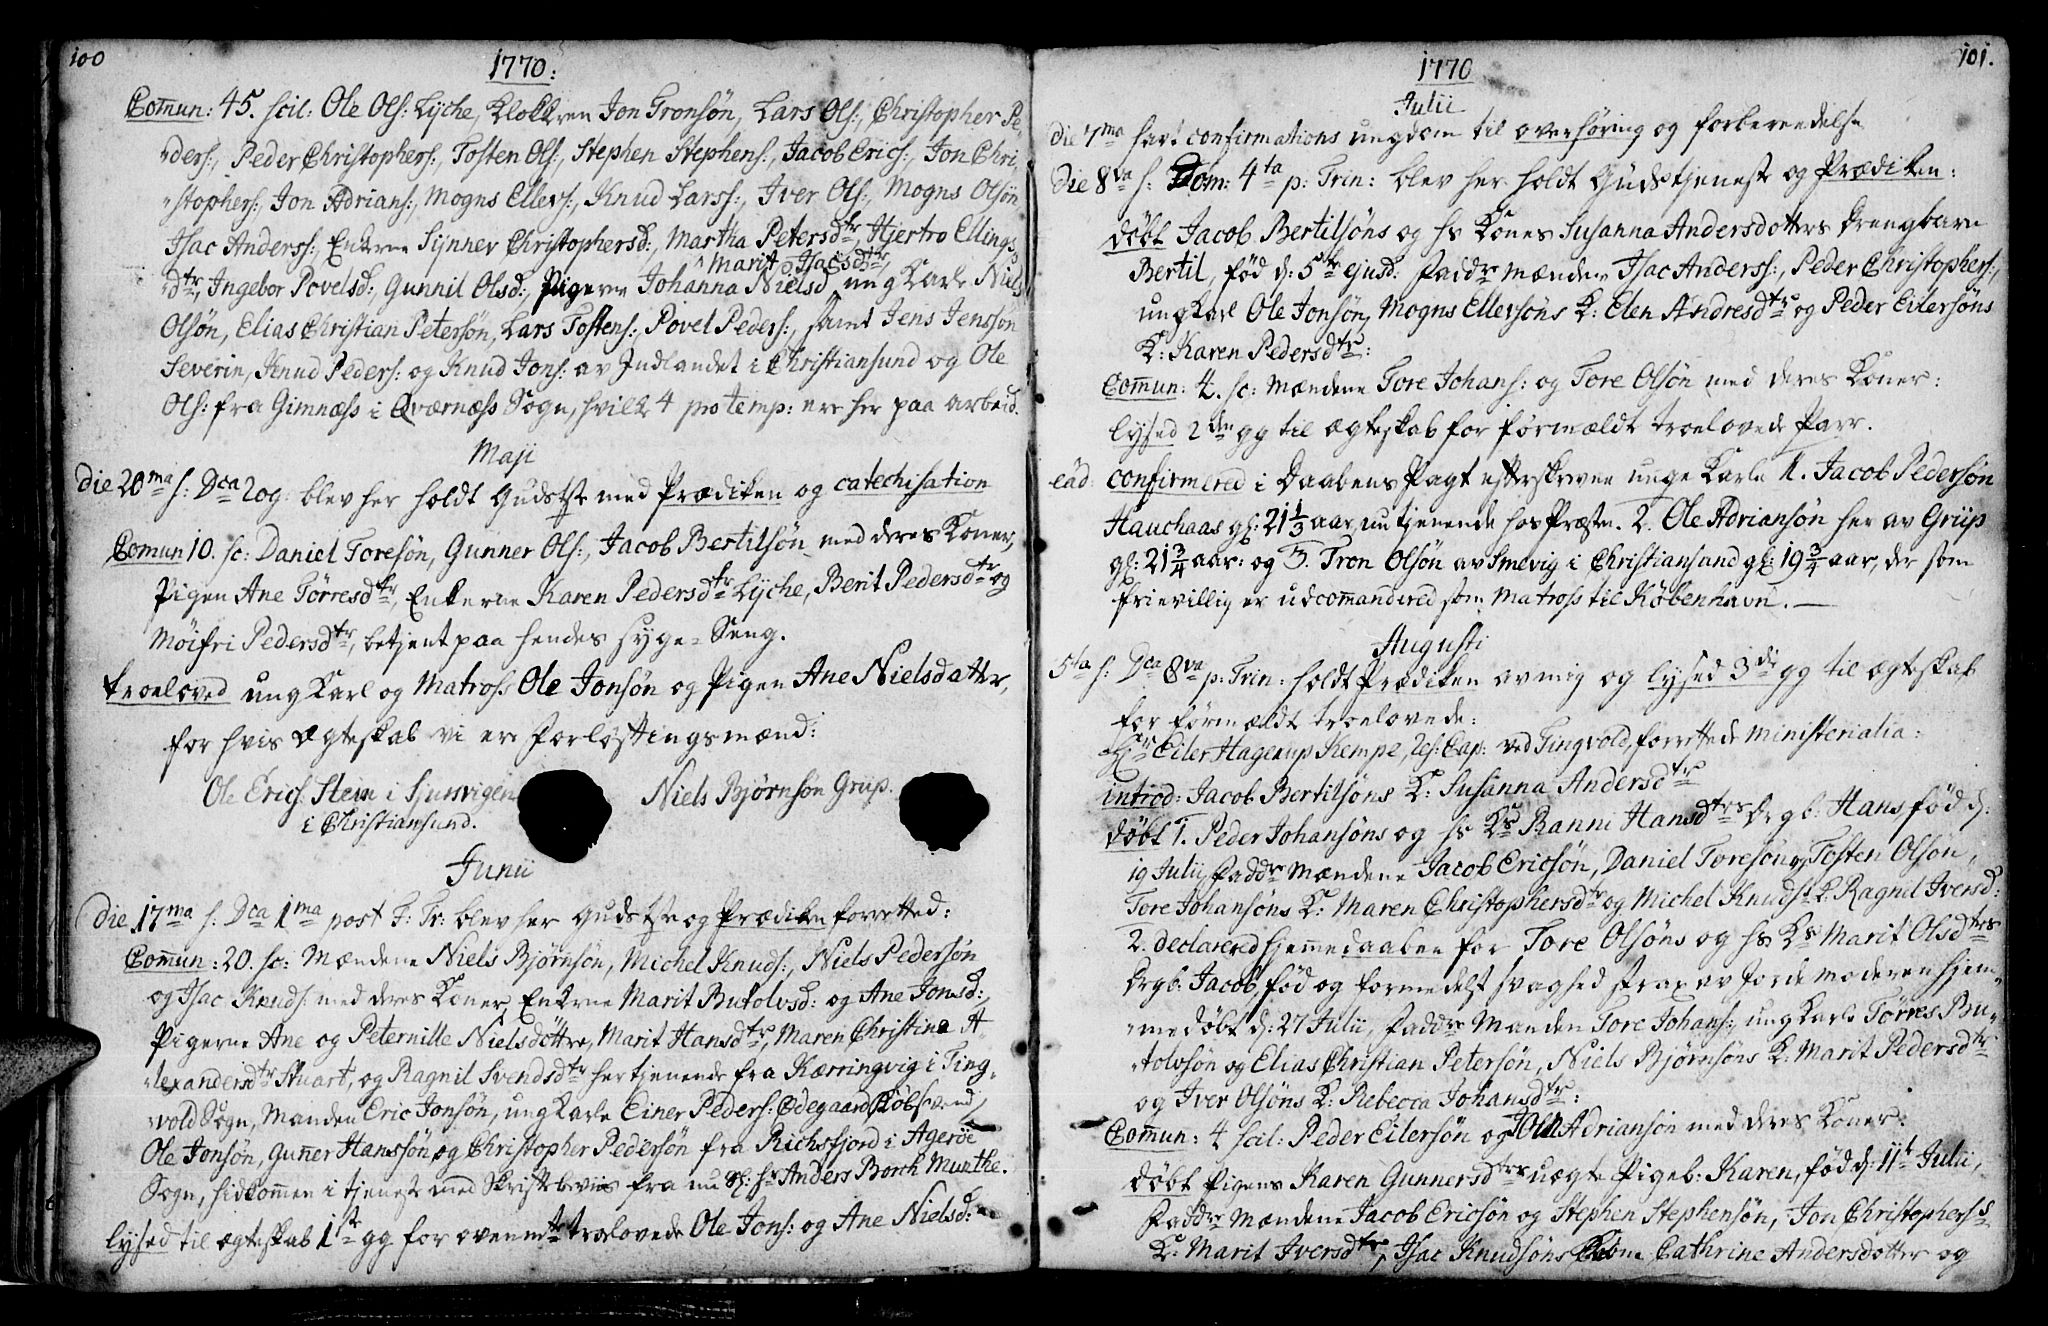 100
1770:
Comun: 45. scil: Ole Ols: Lÿche, Klokkren Jon Tronsøn, Lars Ols:, Christopher Pe,
"ders:, Peder Christophers:, Tosten Ols:, Stephen Stephens:, Jacob Erics:, Jon Chri,
"stophers:, Jon Adrians:, Mogns Ellevs:, Knud Larss:, Iver Ols:, Mogns Olsön
Isac Anderss:, Enkerne Sÿnnev Christophersd:, Martha Petersdtr, Hjertro Ellings,
^Marit Isacsdtr,
"dtr, Ingebor Povelsd:, Gunnil Olsd:, Pigerne Johanna Nielsd, ung Karle Niels
Olsøn, Elias Christian Petersøn, Lars Tostens:, Povel Peders:, samt Jens Jenssøn
Severin, Knud Peders: og Knud Jons: av Indlandet i Christiansund og Ole
Ols: fra Gimnæss i Qværnæss Sogn, hvilke 4 pro temp: ere her paa arbeid.
Maji
Die 20ma s: Dca rog: blev her holdt Gudstste med Prædiken og catechisation
Comun 10. sc: Daniel Toresøn, Gunner Ols:, Jacob Bertilsøn med deres Koner,
Pigen Ane Törresdtr, Enkerne Karen Pedersdtr Lÿche, Berit Pedersdtr og
Möifri Pedersdtr, betjent paa hendes syge=Seng.
troeloved ung Karl og Matross Ole Jonsøn og Pigen Ane Nielsdatter,
for hvis Ægteskab vi ere Forlovtingsmænd:
Ole Erics: Stein i
i Christiansund.
Niels Bjørnsøn Grip.
Junii
Die 17ma s: Dca 1ma post F: Tr: blev her Gudstste og Prædiken forretted:
Commun: 20. sc: Mændene Niels Bjørnsøn, Michel Knuds:, Niels Pedersøn
og Isac Knuds: med deres Koner, Enkerne Marit Butolvsd: og Ane Jonsd:,
Pigerne Ane og Peternille Nielsdöttre, Marit Hansdtr, Maren Christina A-
"lexandersdtr Stuart, og Ragnil Svendsdtr her tjenende fra Kærringvig i Ting,
"vold Sogn, Manden Eric Jonsøn, ung Karle Einer Peders: Ødegaard,
Ole Jonsøn, Gunner Hanssøn og Christopher Pedersøn fra Richsfjord i Agerøe
Sogn, hidkommen i tjeneste med Skriftebeviis fra nu Sl: Hr Anders Borch Munthe.
lysed til ægteskab 1ste gg for ovennte troelovede Ole Jons: og Ane Nielsd:
101.
1770
Julii
die 7ma havt confirmations ungdom til overhöring og forberedelse
Die 8va s: Dom: 4ta p: Trin: blev her holdt Gudstjeneste og Prædiken:
döbt Jacob Bertilsöns og hs Kones Susanna Andersdotters drengbarn
Bertil, född d: 5te ejusd: Faddr mændene Isac Anderss:, Peder Christophers:,
ung Karl Ole Jonsön, Mogns Ellevsöns K: Elen Andresdtr og Peder Eilersöns
K: Karen Pedersdtr:
Commun: 4. sc: mændene Tore Johans: og Tore Olsön med deres Koner:
lysed 2den gg til ægteskab for förmældte troelovede Parr.
eâd: confirmered i Daabens Pagt efterskrevne unge Karle 1. Jacob Pedersön
Hauchaas gl: 21 1/3 aar, nu tjenende hos Præsten. 2. Ole Adriansön her av Griip
gl: 21 3/4 aar: og 3. Tron Olsön av Smevig i Christiansund gl: 19 3/4 aar, der som
frievillig er udcommandered som Matross til København. —
Augusti
5ta s: Dca 8va p: Trin: holdt Prædiken av mig og lysed 3die gg til ægteskab
for förmældte troelovede:
Hr Eiler Hagerup Kempe, Res: Cap: ved Tingvold, forrettede ministerialia:
introd: Jacob Bertilsöns K: Susanna Andersdtr
döbt 1. Peder Johansöns og hs Ks Ranni Hansdtrs Drgb: Hans född d:
19 Julii, Faddr Mændene Jacob Ericsön, Daniel Toresön og Tosten Olsön,
Tore Johansöns K: Maren Christophersdtr og Michel Knuds: K: Ragnil Iversd:
2. declarered hjemmedaaben for Tore Olsöns og hs Ks Marit Olsdtrs
Drgb: Jacob, född og formedelst svaghed strax av Jordemoderen hjem,
"medöbt d: 27 Julii, Faddr Manden Tore Johans:, ung Karle Törres Bu-
"tolvsön og Elias Christian Petersön, Niels Bjørnsöns K: Marit Pedersdtr
og Iver Olsöns K: Rebecca Johansdtr:
Commun: 4 scil: Peder Eilersön og Jon Adriansön med deres Koner:
döbt Pigens Karen Gunnersdtrs uægte Pigeb: Karen, född d: 11te Julii,
Faddr Mændene Jacob Ericsön og Stephen Stephensön, Jon Christophers:s
K: Marit Iversdtr, Isac Knudsöns Kone Cathrine Andersdotter og